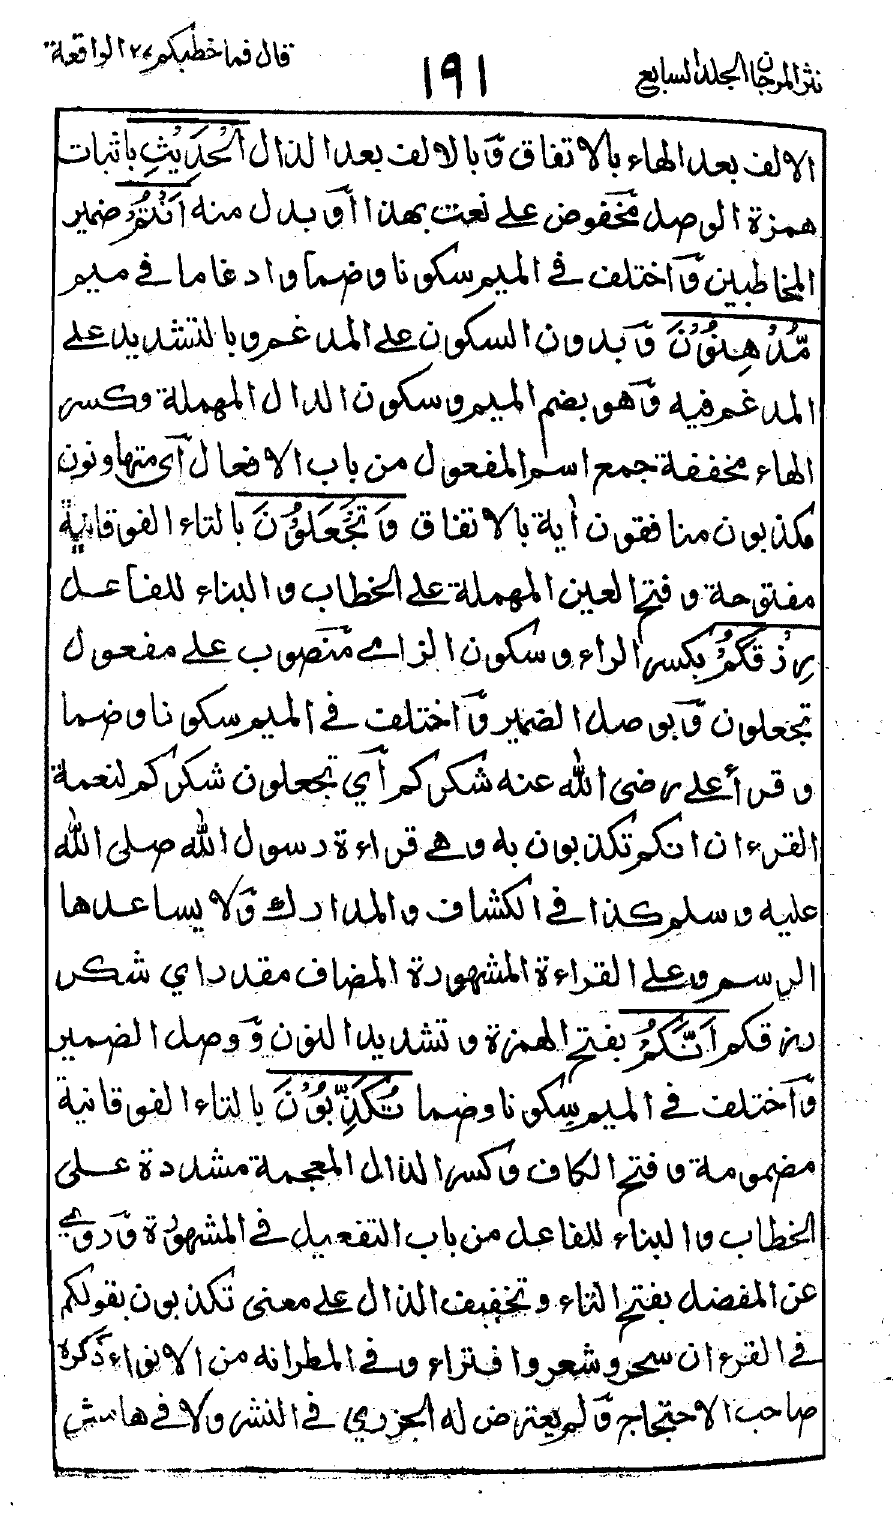 نثر المرجان الجلد السابع
١٩١
قال فما خطبكم ٢٧ الواقعة
الالف بعد الهاء بالاتفاق وَبالالف بعد الذال الْحَدِيْثِ باثبات
همزة الوصل مخفوض على نعت بهذا اَوبدل منه اَنْتُمْ ضمير
المخاطبين وَاختلف في الميم سكونا وضما وادغاما في ميم
مُّدْهِنُوْنَ وَبدون السكون على المدغم وبالتشديد على
المدغم فيه وَهو بضم الميم وسكون الدال المهملة وكسر
الهاء مخففة جمع اسم المفعول من باب الافعال اَى متهاونون
مكذبون منافقون اٰية بالاتفاق وَتَجْعَلُوْنَ بالتاء الفوقانية
مفتوحة وفتح العين المهملة على الخطاب والبناء للفاعل
رِزْقَكُمْ بكسر الراء وسكون الزاے مَنصوب على مفعول
تجعلون وَبوصل الضمير وَاختلف في الميم سكونا وضما
وقرأ على رضى الله عنه شكركم اَي تجعلون شكركم لنعمة
القرءان انكم تكذبون به وهي قراءة رسول الله صلى الله
عليه وسلم كذا في الكشاف والمدارك وَلا يساعدها
الرسم وعلى القراءة المشهورة المضاف مقدر اي شكر
رزقكم اَنَّكُمْ بفتح الهمزة وتشديد النون وَوصل الضمير
وَاختلف في الميم سكونا وضما تُكَذِّبُوْنَ بالتاء الفوقانية
مضمومة وفتح الكاف وكسر الذال المعجمة مشددة على
الخطاب والبناء للفاعل من باب التفعيل في المشهورة وَروي
عن المفضل بفتح التاء وتخفيف الذال على معنى تكذبون بقولكم
في القرءان سحر وشعر وافتراء وفي المطر انه من الانواء ذكره
صاحب الاحتجاج وَلم يعترض له الجزري في النشر ولا في هامش